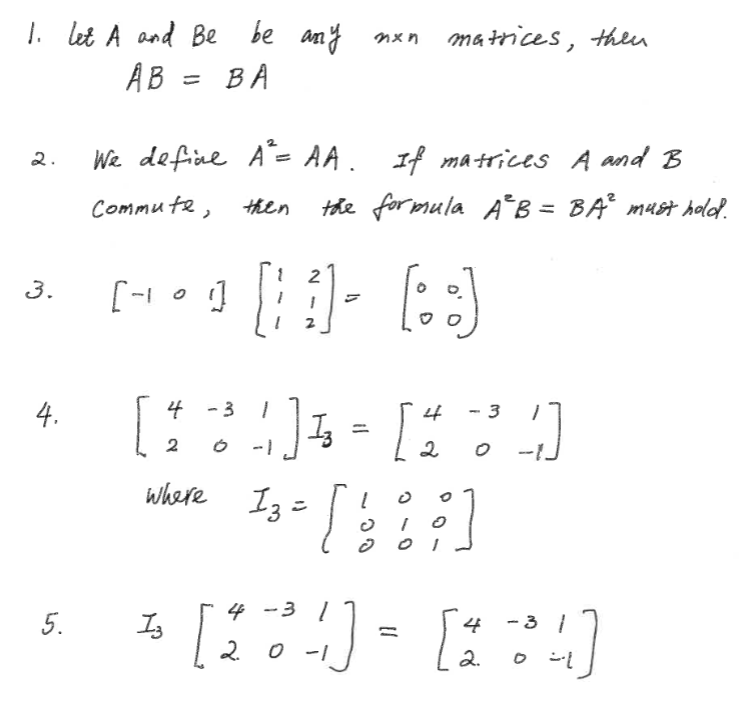 1. let A and Be be any nxn matrices, then
AB = BA
2. We define A² = AA. If matrices A and B
Commute, then the formula A²B = BA² must hold.
3. [-1 0 1] [1 2 ; 1 1 ; 1 2] = [0 0 ; 0 0]
4. [4 -3 1 ; 2 0 -1] I₃ = [4 -3 1 ; 2 0 -1]
where I₃ = [1 0 0 ; 0 1 0 ; 0 0 1]
5. I₃ [4 -3 1 ; 2 0 -1] = [4 -3 1 ; 2 0 -1]